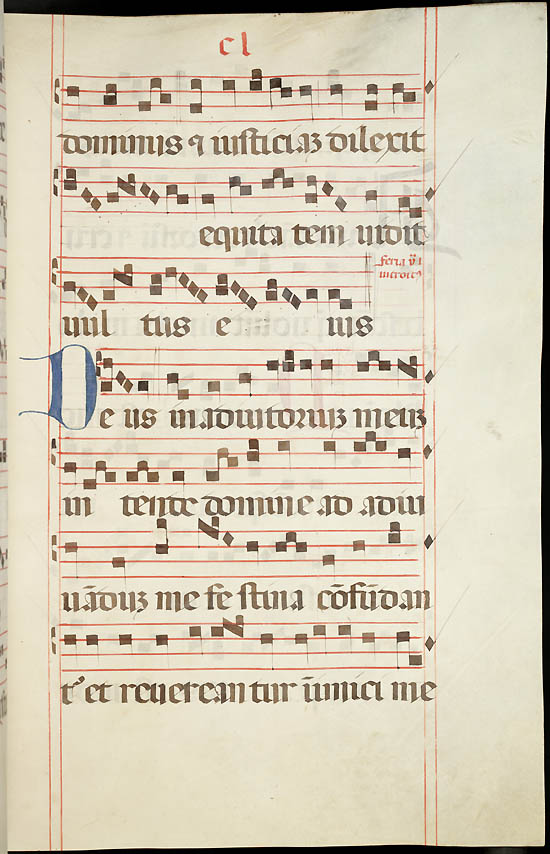 cl
dominus ⁊ iusticiaʒ dilexit
equita tem uidit
feria vi
introitꝰ
uul tus e ius
De us in adiutoriuʒ meuʒ
in tende domine ad adiu
uāduʒ me fe stina cōfūdan
tʾ et reuerean tur īimici me